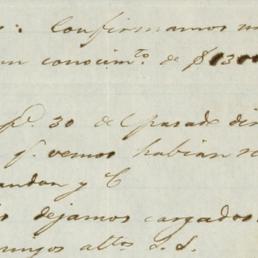 : Confirmamos n
un conocimto. de $130
p. 30 del pasado di
q. vemos habian r
andon y C
dejamos cargados
altos S. S.